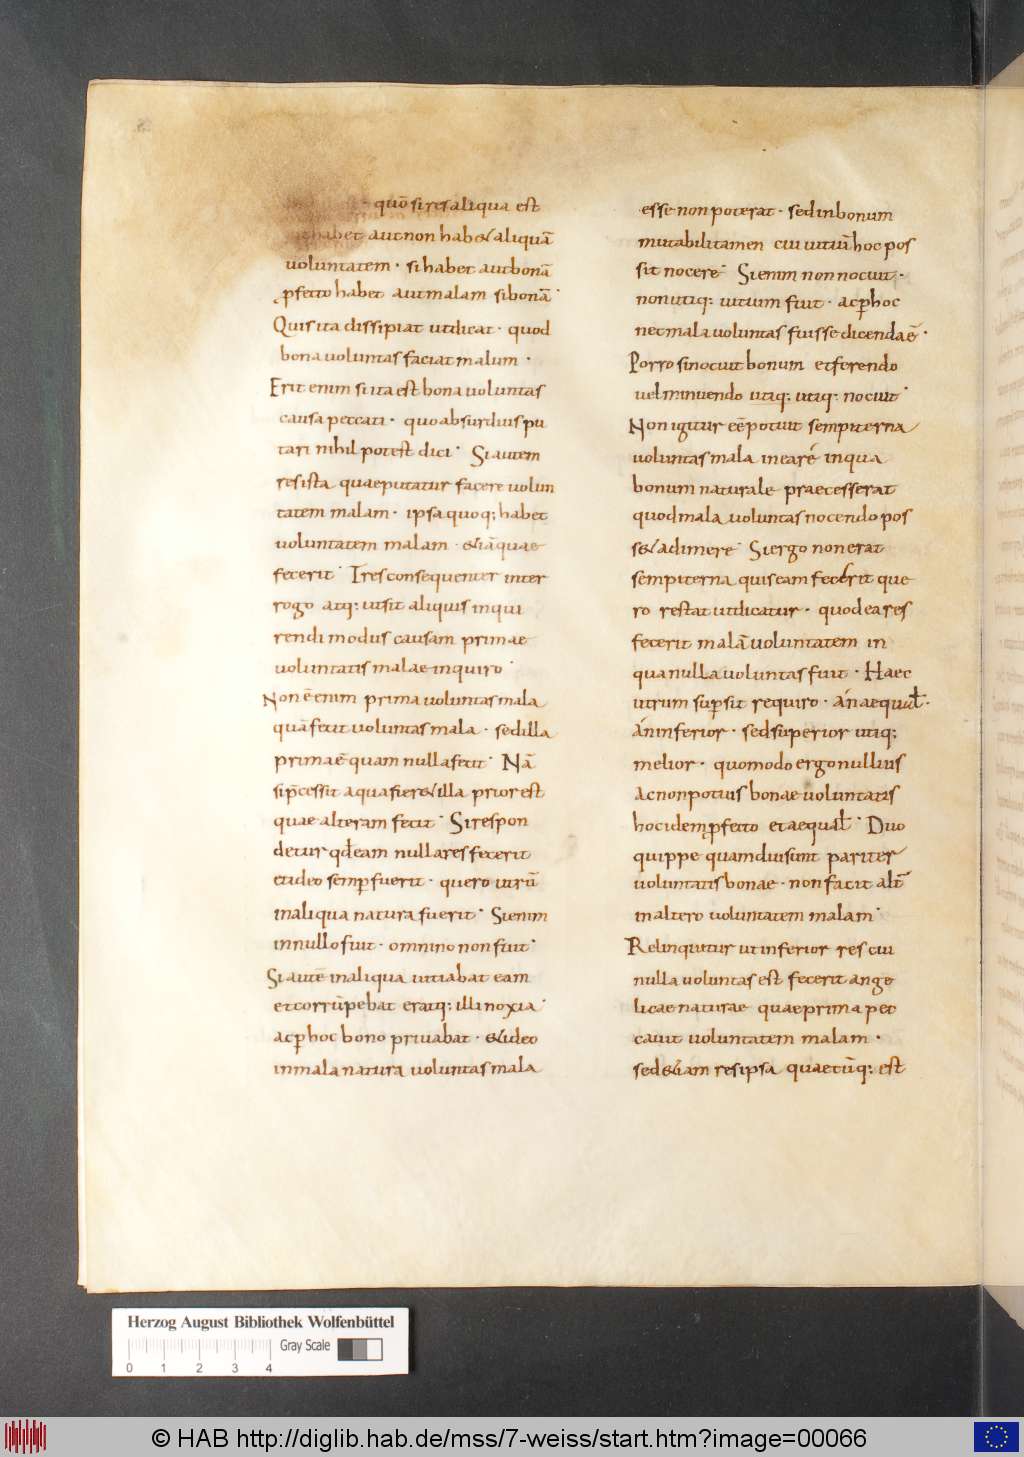 quō si res aliqua est
habet aut non hab& aliquā
uoluntatem · si habet aut bonā
ꝓfecto habet aut malam si bonā ·
Quis ita dissipiat ut dicat · quod
bona uoluntas faciat malum ·
Erit enim si ita est bona uoluntas
causa peccati · quo absurdius pu
tari nihil potest dici · Si autem
res ista quae putatur facere uolun
tatem malam · ipsa quoq; habet
uoluntatem malam · &iā quae
fecerit · Ires consequenter inter
rogo atq; ut sit aliquis inqui
rendi modus causam primae
uoluntatis malae inquiro ·
Non ē enim prima uoluntas mala
quā fecit uoluntas mala · sed illa
prima ē quam nulla fecit · Nā
si p̄cessit a qua fier& illa prior est
quae alteram fecit · Si respon
detur qđ eam nulla res fecerit
et ideo semꝑ fuerit · quero utrū
in aliqua natura fuerit · Si enim
in nullo fuit · omnino non fuit ·
Si autē in aliqua uitiabat eam
et corrūpebat eratq; illi noxia ·
ac ꝑ hoc bono priuabat · & ideo
in mala natura uoluntas mala
esse non poterat · sed in bonum
mutabili tamen cui uitiū hoc pos
sit nocere · Si enim non nocuit ·
non utiq; uitium fuit · ac ꝑ hoc
nec mala uoluntas fuisse dicenda ē ·
Porro si nocuit bonum et ferendo
uel minuendo utiq; utiq; nocuit ·
Non igitur eē potuit sempiterna
uoluntas mala in ea rē in qua
bonum naturale praecesserat
quod mala uoluntas nocendo pos
s& adimere · Si ergo non erat
sempiterna quis eam fecerit que
ro restat ut dicatur · quod ea res
fecerit malā uoluntatem in
qua nulla uoluntas fuit · Haec
utrum suꝑ sit requiro · an aequał ·
an inferior · sed superior utiq;
melior · quomodo ergo nullius
ac non potius bonae uoluntatis
hoc idem ꝓfecto et aequał · Duo
quippe quamdiu sunt pariter
uoluntatis bonae · non facit alt̄
in altero uoluntatem malam ·
Relinquitur ut inferior res cui
nulla uoluntas est fecerit ange
licae naturae quae prima pec
cauit uoluntatem malam ·
sed &iam res ipsa quaecūq; est
Herzog August Bibliothek Wolfenbüttel
Gray Scale
0 1 2 3 4
© HAB http://diglib.hab.de/mss/7-weiss/start.htm?image=00066